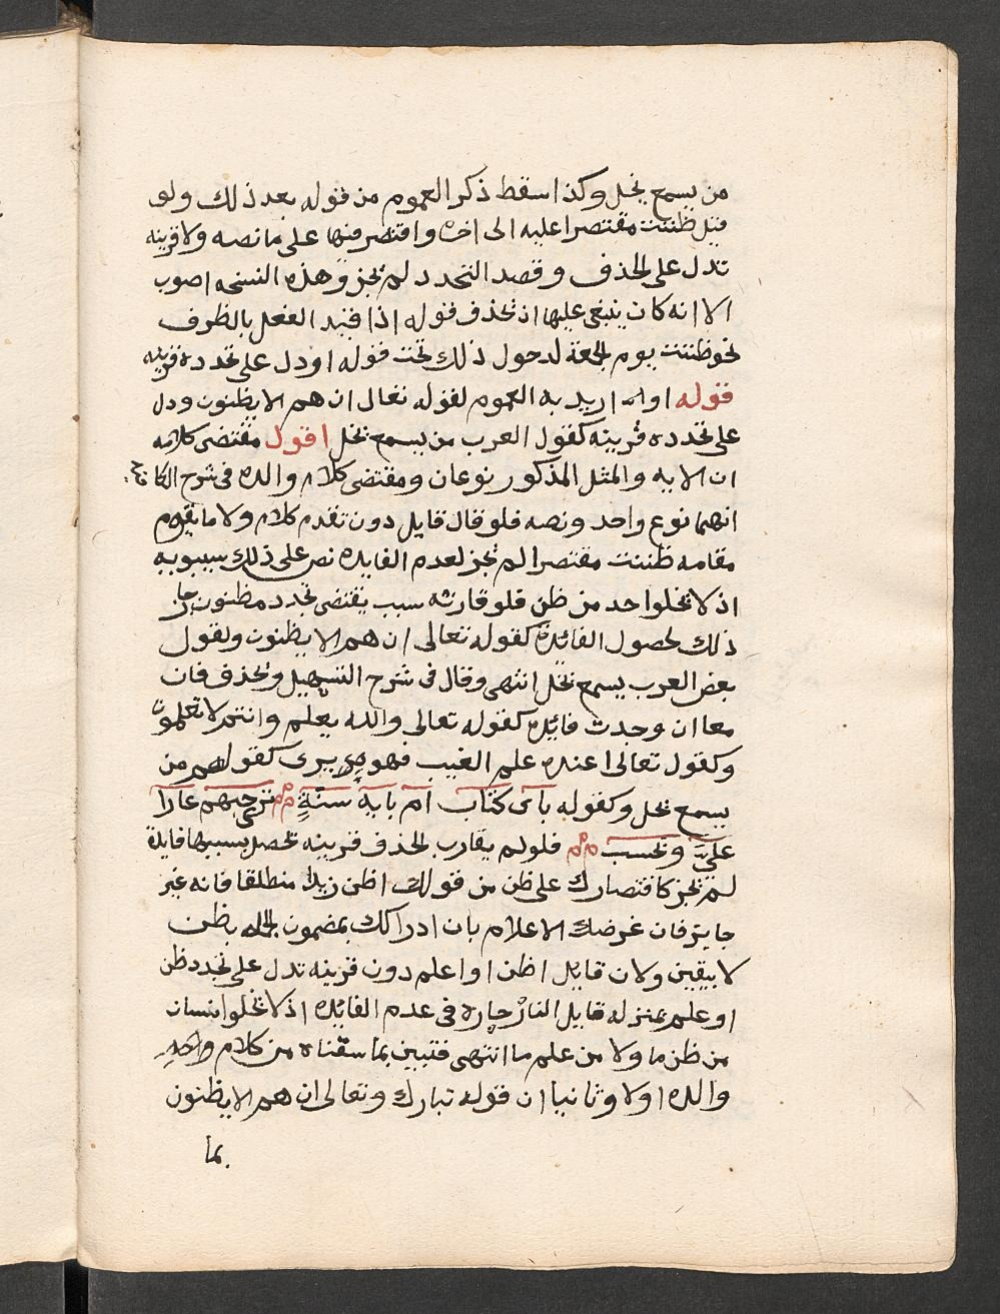 من يسمع يخل وكذا سقط ذكر العموم من قوله بعد ذلك ولو
قيل ظننت مقتصرا عليه الى اخره واقتصر منها على ما نصه ولا قرينه
تدل على الحذف وقصد التجدد لم يجز وهذه النسخه اصوب
الا انه كان ينبغي عليها ان تحذف قوله اذا قيد الفعل بالظرف
نحو ظننت يوم الجمعة لدخول ذلك تحت قوله او دل على تجدده قرينه
قوله او اريد به العموم لقوله تعالى ان هم الا يظنون ودل
على تجدده قرينه كقول العرب من يسمع يخل اقول مقتضى كلامه
ان الايه والمثل المذكور نوعان ومقتضى كلام والده في شرح الكافيه
انهما نوع واحد ونصه فلو قال قايل دون تقدم كلام ولا ما يقوم
مقامه ظننت مقتصرا لم يجز لعدم الفايده نص على ذلك سيبويه
اذ لا يخلوا احد من ظن فلو قارنه سبب يقتضي تجدد مظنون جاز
ذلك لحصول الفائدة كقوله تعالى ان هم الا يظنون ولقول
بعض العرب يسمع يخل انتهى وقال في شرح التسهيل ويحذفان
معا ان وجدت فائده كقوله تعالى والله يعلم وانتم لا تعلمون
وكقول تعالى اعنده علم الغيب فهو يرى كقولهم من
يسمع يخل وكقوله باى كتاب ام باية سنةٍ ترى حبهم عارا
عليَّ وتحسب فلو لم يقارب الحذف قرينه تحصل بسببها فايدة
لم يجز كاقتصارك على ظن من قولك اظن زيدا منطلقا فانه غير
جايز فان غرضك الاعلام بان ادراكك بمضمون الجمله بظن
لا بيقين ولان قايل اظن او اعلم دون قرينه تدل على تجدد ظن
او علم بمنزله قايل النار حاره في عدم الفائده اذ لا يخلوا انسان
من ظن ما ولا من علم ما انتهى فتبين بما سقناه من كلام واحد
والده اولا وثانيا ان قوله تبارك وتعالى ان هم الا يظنون
بما